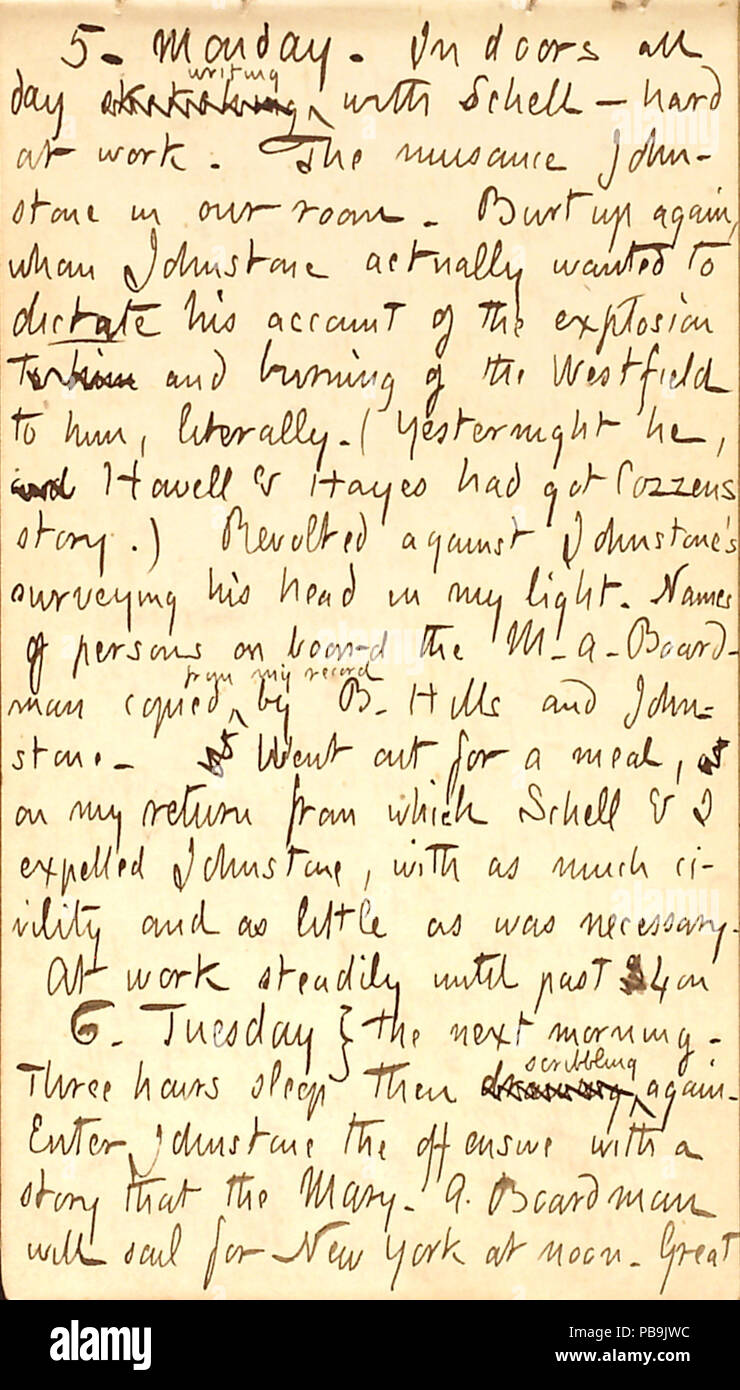 5. Monday. In doors all
day sketching writing with Schell — hard
at work. The nuisance John-
stone in our room. Burst up again,
when Johnstone actually wanted to
dictate his account of the explosion
to him and burning of the Westfield
to him, literally. (Yesternight he,
and Howell & Hayes had got Cozzens
story.) Revolted against Johnstone's
surveying his head in my light. Names
of persons on board the M. A. Board-
man copied from my record by B. Hills and John-
stone. Went out for a meal,
on my return from which Schell & I
expelled Johnstone, with as much ci-
vility and as little as was necessary.
At work steadily until past 4 on
6. Tuesday } the next morning.
Three hours sleep then drawing scribbling again.
Enter Johnstone the offensive with a
story that the Mary. A. Boardman
will sail for New York at noon. Great
alamy
alamy
Image ID: PB9JWC
www.alamy.com